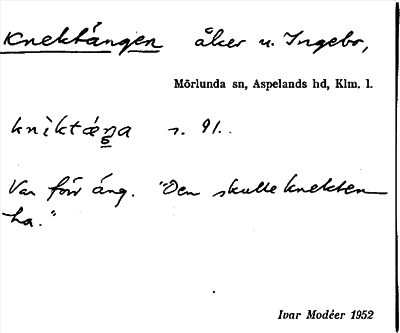 Knektängen åker u. Ingebo,
Mörlunda sn, Aspelands hd, Klm. l.
s. 91.
Var förr äng. "Den skulle knekten
ha."
Ivar Modéer 1952